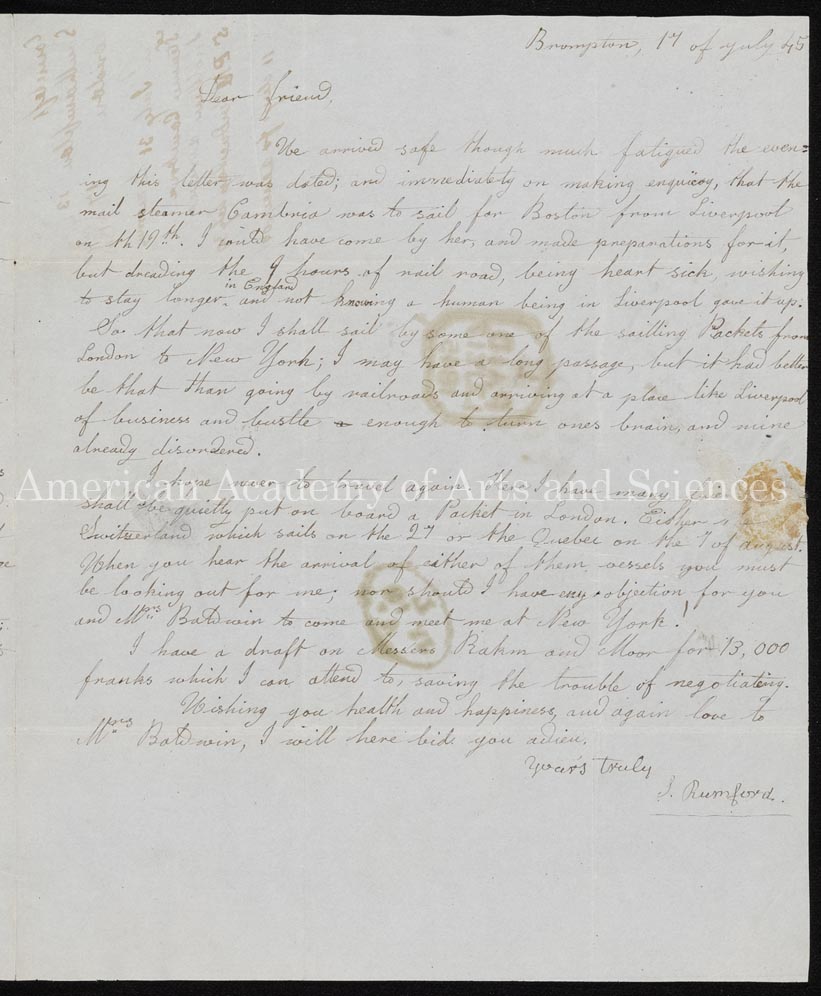 Brompton, 17 of July 45
Dear friend,
We arrived safe though much fatigued the even=
ing this letter was dated; and immediately on making enquiery, that the
mail steamer Cambria was to sail for Boston from Liverpool
on th 19th. I could have come by her, and made preparations for it,
but dreading the 9 hours of rail road, being heart sick, wishing
to stay longer in England and not knowing a human being in Liverpool gave it up.
So that now I shall sail by some one of the sailling Packets from
London to New York; I may have a long passage, but it had better
be that than going by railroads and arriving at a place like Liverpool
of business and bustle enough to turn ones brain, and mine
already disordered.
I hope never to travel again. Here I have many
shall be quietly put on board a Packet in London. Either
Switzerland which sails on the 27 or the Quebec on the 7 of august.
When you hear the arrival of either of them vessels you must
be looking out for me; nor should I have any objection for you
and Mrs Baldwin to come and meet me at New York!
I have a draft on Messers Rahm and Moor for 13,000
franks which I can attend to, saving the trouble of negotiating.
Wishing you health and happiness, and again love to
Mrs Baldwin, I will here bid you adieu.
Your's truly
S. Rumford.
American Academy of Arts and Sciences